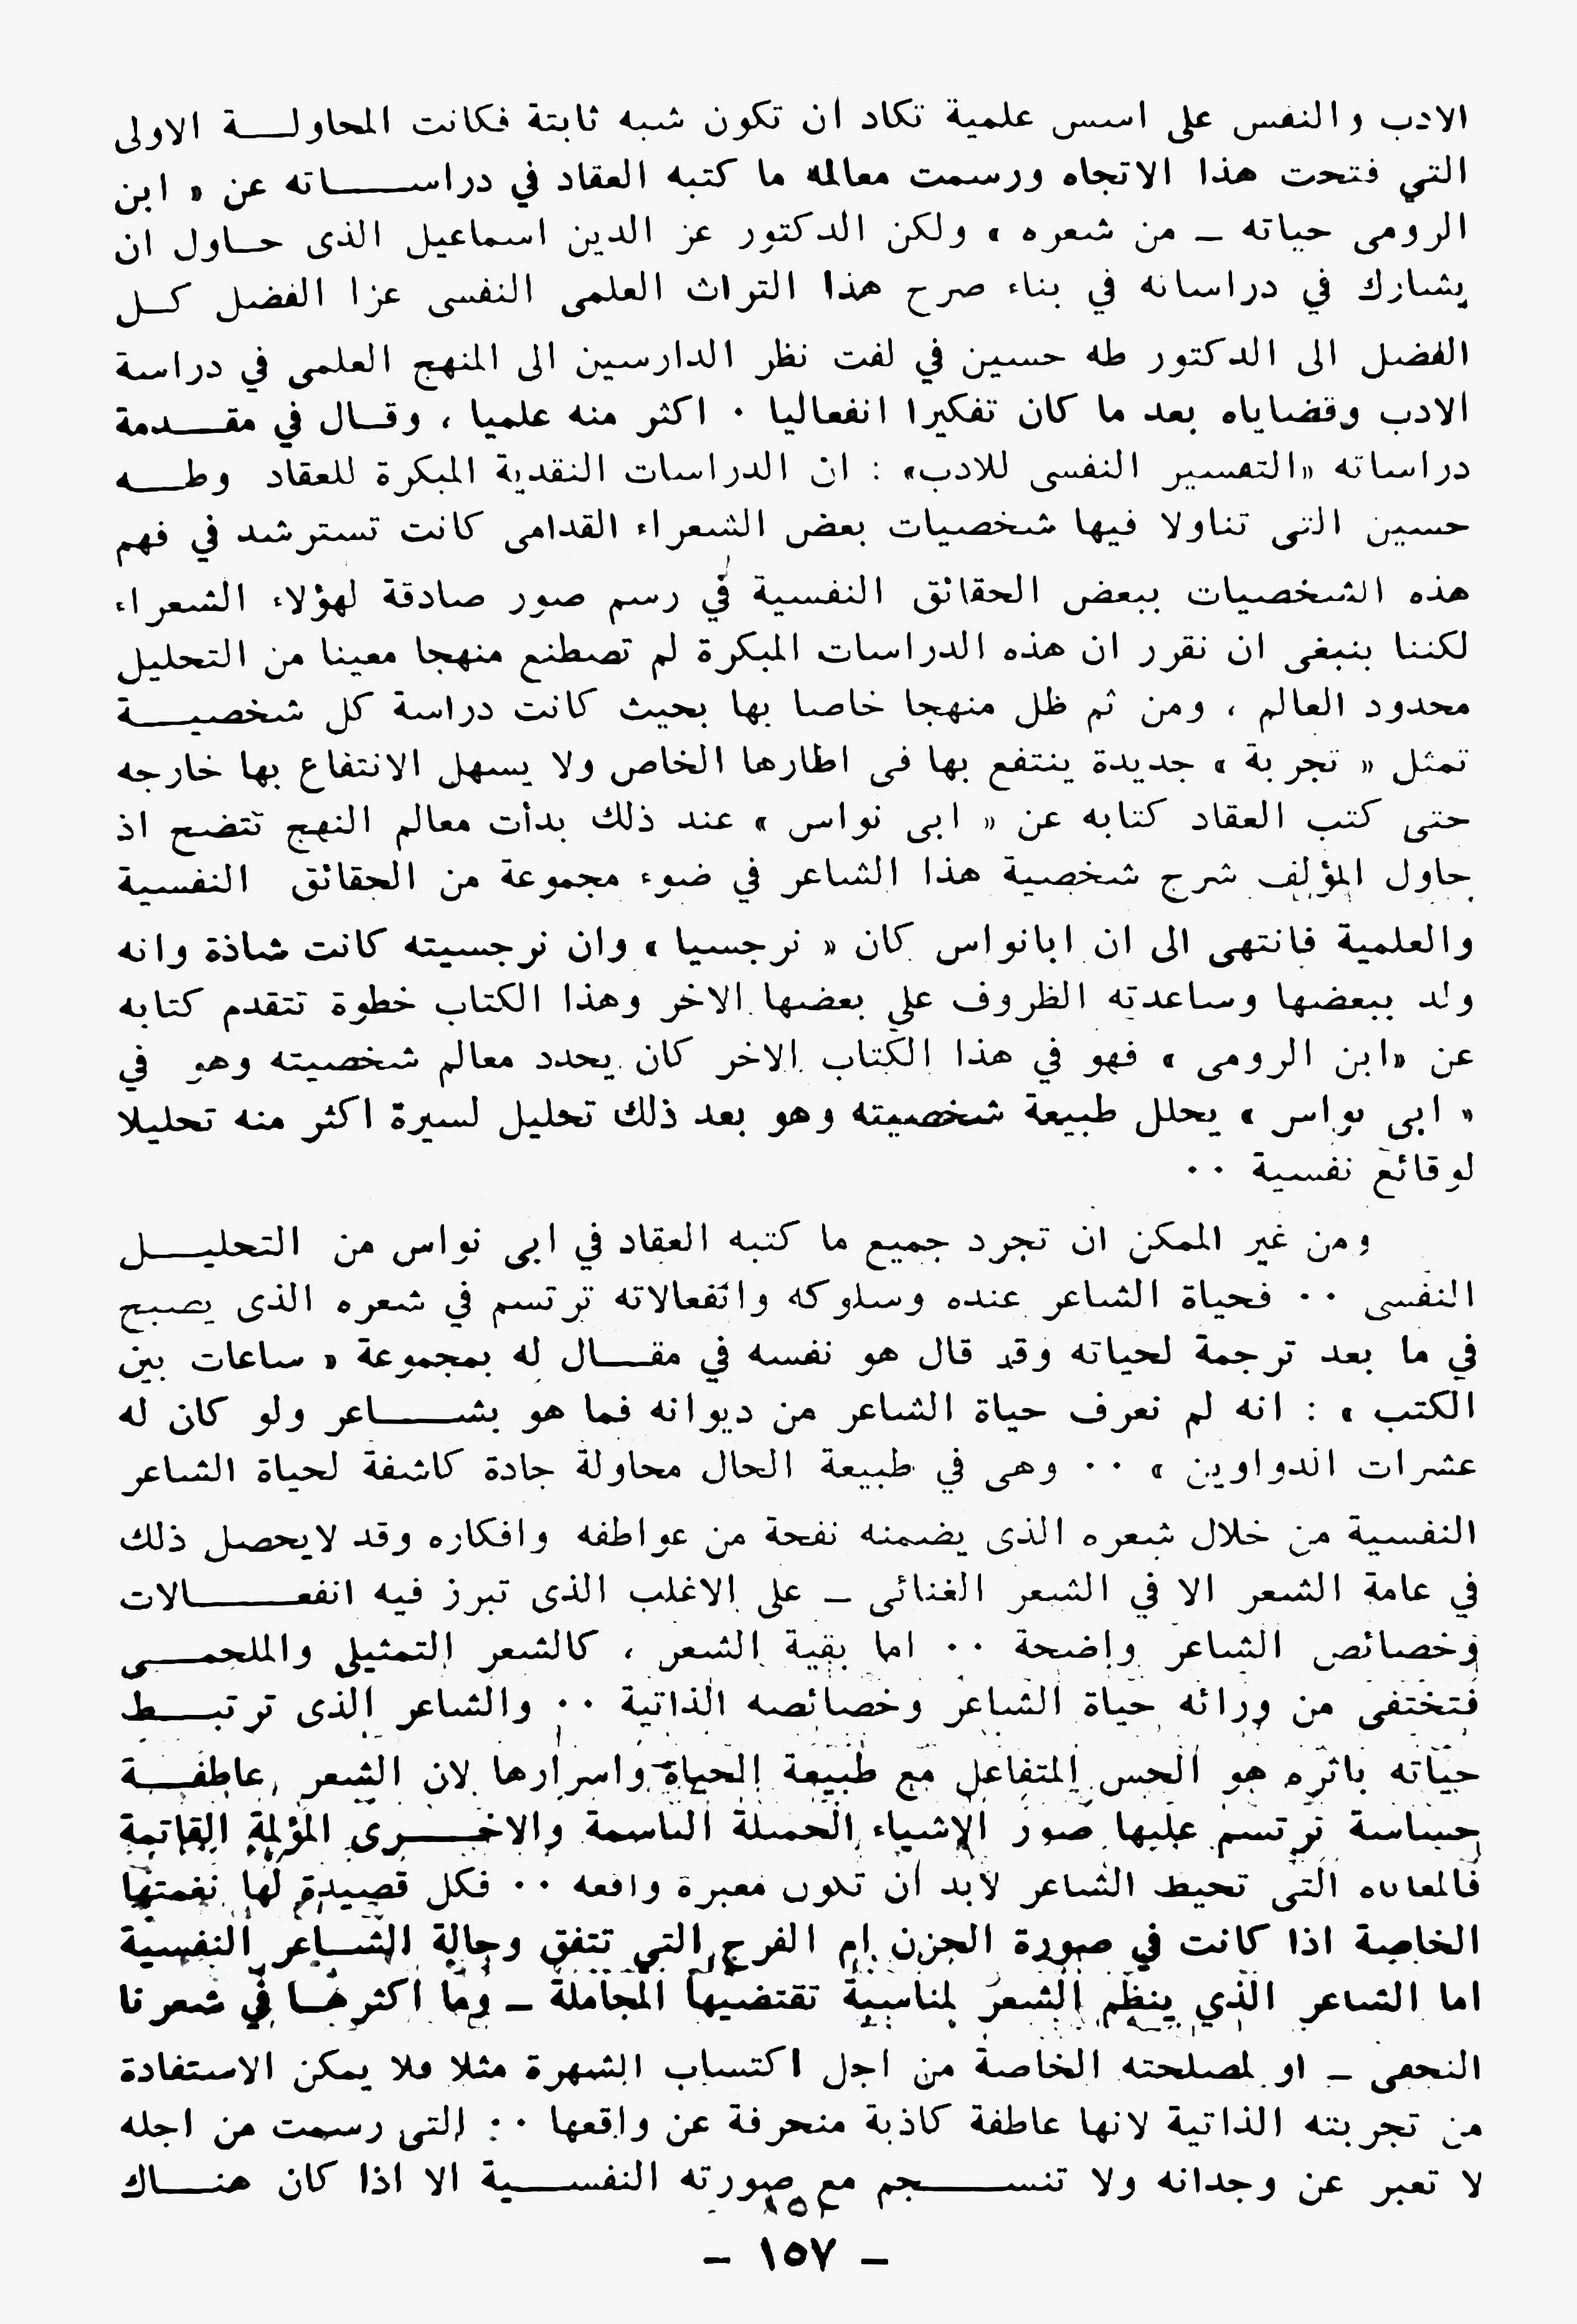 الادب والنفس على اسس علمية تكاد ان تكون شبه ثابتة فكانت المحاولة الاولى
التي فتحت هذا الاتجاه ورسمت معالمه ما كتبه العقاد في دراساته عن « ابن
الرومى حياته ـ من شعره » ولكن الدكتور عز الدين اسماعيل الذى حاول ان
يشارك في دراساته في بناء صرح هذا التراث العلمى النفسى عزا الفضل كل
الفضل الى الدكتور طه حسين في لفت نظر الدارسين الى المنهج العلمى في دراسة
الادب وقضاياه بعد ما كان تفكيرا انفعاليا ٠ اكثر منه علميا ، وقال في مقدمة
دراساته «التفسير النفسى للادب» : ان الدراسات النقدية المبكرة للعقاد وطه
حسين التى تناولا فيها شخصيات بعض الشعراء القدامى كانت تسترشد في فهم
هذه الشخصيات ببعض الحقائق النفسية في رسم صور صادقة لهؤلاء الشعراء
لكننا ينبغى ان نقرر ان هذه الدراسات المبكرة لم تصطنع منهجا معينا من التحليل
محدود العالم ، ومن ثم ظل منهجا خاصا بها بحيث كانت دراسة كل شخصية
تمثل « تجربة » جديدة ينتفع بها فى اطارها الخاص ولا يسهل الانتفاع بها خارجه
حتى كتب العقاد كتابه عن « ابى نواس » عند ذلك بدأت معالم النهج تتضح اذ
حاول المؤلف شرح شخصية هذا الشاعر في ضوء مجموعة من الحقائق النفسية
والعلمية فانتهى الى ان ابانواس كان « نرجسيا » وان نرجسيته كانت شاذة وانه
ولد ببعضها وساعدته الظروف على بعضها الاخر وهذا الكتاب خطوة تتقدم كتابه
عن «ابن الرومى » فهو في هذا الكتاب الاخر كان يحدد معالم شخصيته وهو في
« ابى نواس » يحلل طبيعة شخصيته وهو بعد ذلك تحليل لسيرة اكثر منه تحليلا
لوقائع نفسية ٠٠
ومن غير الممكن ان تجرد جميع ما كتبه العقاد في ابى نواس من التحليل
النفسى ٠٠ فحياة الشاعر عنده وسلوكه وانفعالاته ترتسم في شعره الذى يصبح
في ما بعد ترجمة لحياته وقد قال هو نفسه في مقال له بمجموعة « ساعات بين
الكتب » : انه لم نعرف حياة الشاعر من ديوانه فما هو بشاعر ولو كان له
عشرات الدواوين » ٠٠ وهى في طبيعة الحال محاولة جادة كاشفة لحياة الشاعر
النفسية من خلال شعره الذى يضمنه نفحة من عواطفه وافكاره وقد لايحصل ذلك
في عامة الشعر الا في الشعر الغنائى ـ على الاغلب الذى تبرز فيه انفعالات
وخصائص الشاعر واضحة ٠٠ اما بقية الشعر ، كالشعر التمثيلى والملحمى
فتختفى من ورائه حياة الشاعر وخصائصه الذاتية ٠٠ والشاعر الذى ترتبط
حياته باثره هو الحس المتفاعل مع طبيعة الحياة واسرارها لان الشعر عاطفة
حساسة ترتسم عليها صور الاشياء الجميلة الباسمة والاخرى المؤلمة القاتمة
فالمعاناه التى تحيط الشاعر لابد أن تكون معبرة واقعه ٠٠ فكل قصيدة لها نغمتها
الخاصة اذا كانت في صورة الحزن ام الفرح التي تتفق وحالة الشاعر النفسية
اما الشاعر الذي ينظم الشعر لمناسبة تقتضيها المجاملة ـ وما أكثرها في شعرنا
النجفى ـ او لمصلحته الخاصة من اجل اكتساب الشهرة مثلا فلا يمكن الاستفادة
من تجربته الذاتية لانها عاطفة كاذبة منحرفة عن واقعها ٠٠ التى رسمت من اجله
لا تعبر عن وجدانه ولا تنسجم مع صورته النفسية الا اذا كان هناك
ـ ١٥٧ ـ